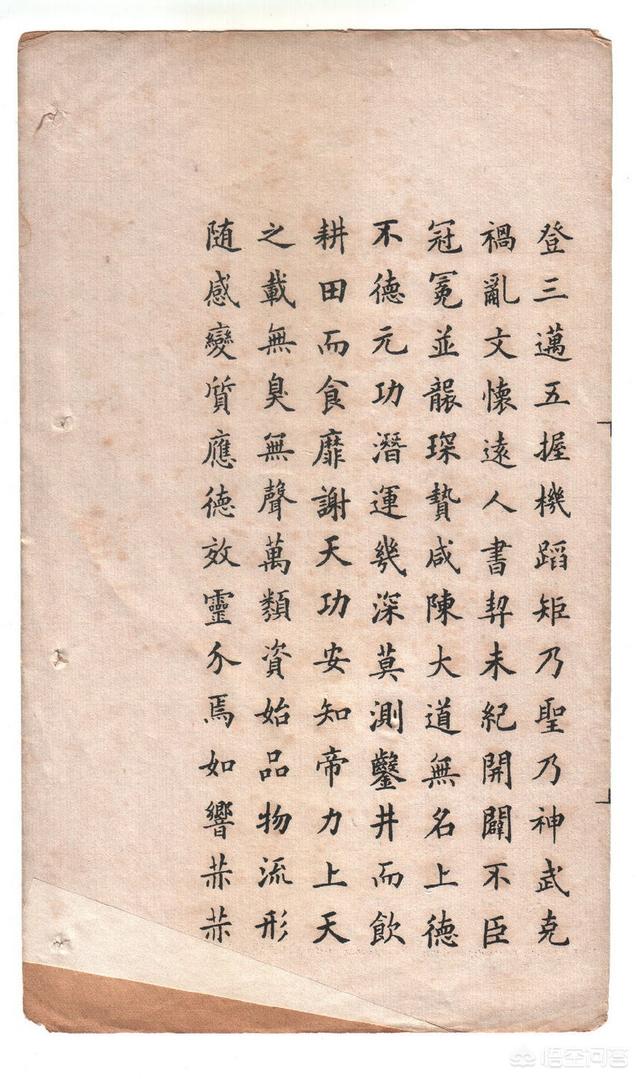 登三邁五握機蹈矩乃聖乃神武克
禍亂文懷遠人書契未紀開闢不臣
冠冕並襲琛贄咸陳大道無名上德
不德元功潛運幾深莫測鑿井而飲
耕田而食靡謝天功安知帝力上天
之載無臭無聲萬類資始品物流形
随感變質應德效靈介焉如響赫赫
悟空问答